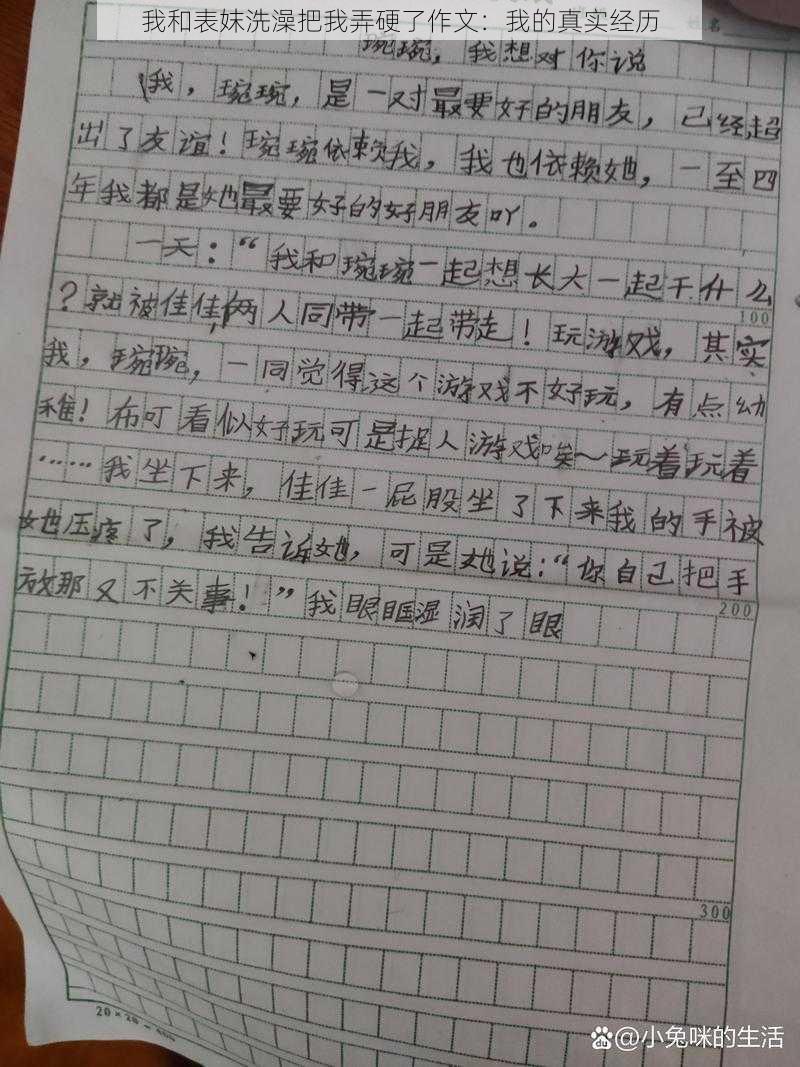 我和表妹洗澡把我弄硬了作文：我的真实经历
琬琬，我想对你说
我，琬琬，是一对最要好的朋友，已经超
出了友谊！琬琬依赖我，我也依赖她，一至四
年我都是她最要好的好朋友吖。
一天：“我和琬琬一起想长大一起干什么
？就被佳佳，两人同带一起带走！玩游戏，其实
100
我，琬琬，一同觉得这个游戏不好玩，有点幼
稚！布叮看似好玩可是捉人游戏唉～玩着玩着
……我坐下来，佳佳一屁股坐了下来我的手被
她压疼了，我告诉她，可是她说：“你自己把手
放那又不关事！”我眼眶湿润了眼
200
300
20×20=400
Bai du @小兔咪的生活